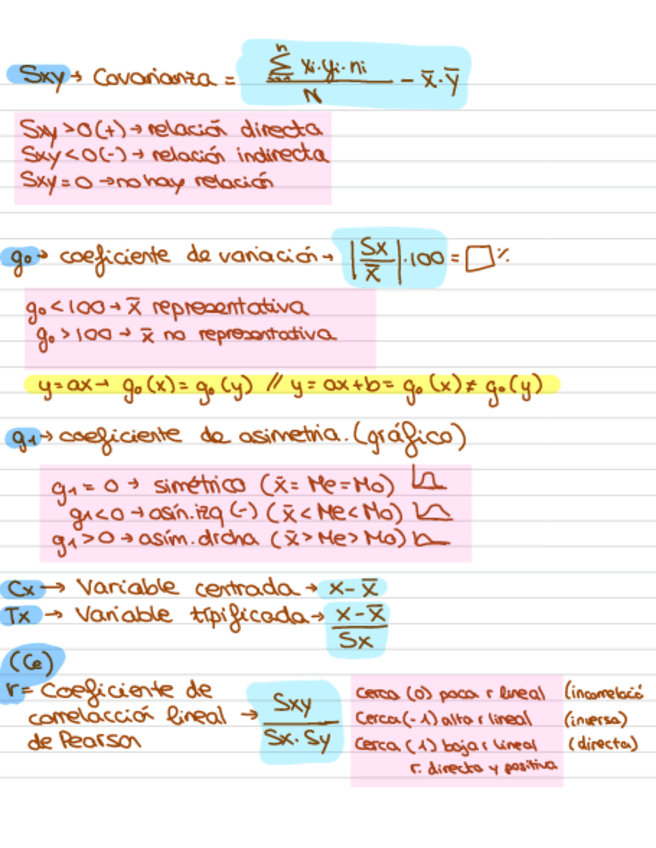 Sxy → Covarianza = $\frac{\sum^{n} x_i \cdot y_i \cdot n_i}{N} - \bar{x} \cdot \bar{y}$
Sxy > 0 (+) → relación directa
Sxy < 0 (-) → relación indirecta
Sxy = 0 → no hay relación
g₀ → coeficiente de variación → |Sx / x̄| · 100 = □ %
g₀ < 100 → x̄ representativa
g₀ > 100 → x̄ no representativa
y = ax → g₀(x) = g₀(y) // y = ax + b = g₀(x) ≠ g₀(y)
g₁ → coeficiente de asimetria. (gráfico)
g₁ = 0 → simétrico (x̄ = Me = Mo)
g₁ < 0 → asín. izq (-) (x̄ < Me < Mo)
g₁ > 0 → asím. drcha (x̄ > Me > Mo)
Cx → Variable centrada → x - x̄
Tx → Variable tipificada → (x - x̄) / Sx
(Ce)
r = Coeficiente de
correlacción lineal → Sxy / (Sx · Sy)
de Pearson
Cerca (0) poca r lineal (incorrelació
Cerca (-1) alta r lineal (inversa)
Cerca (1) baja r lineal (directa)
r. directa y positiva